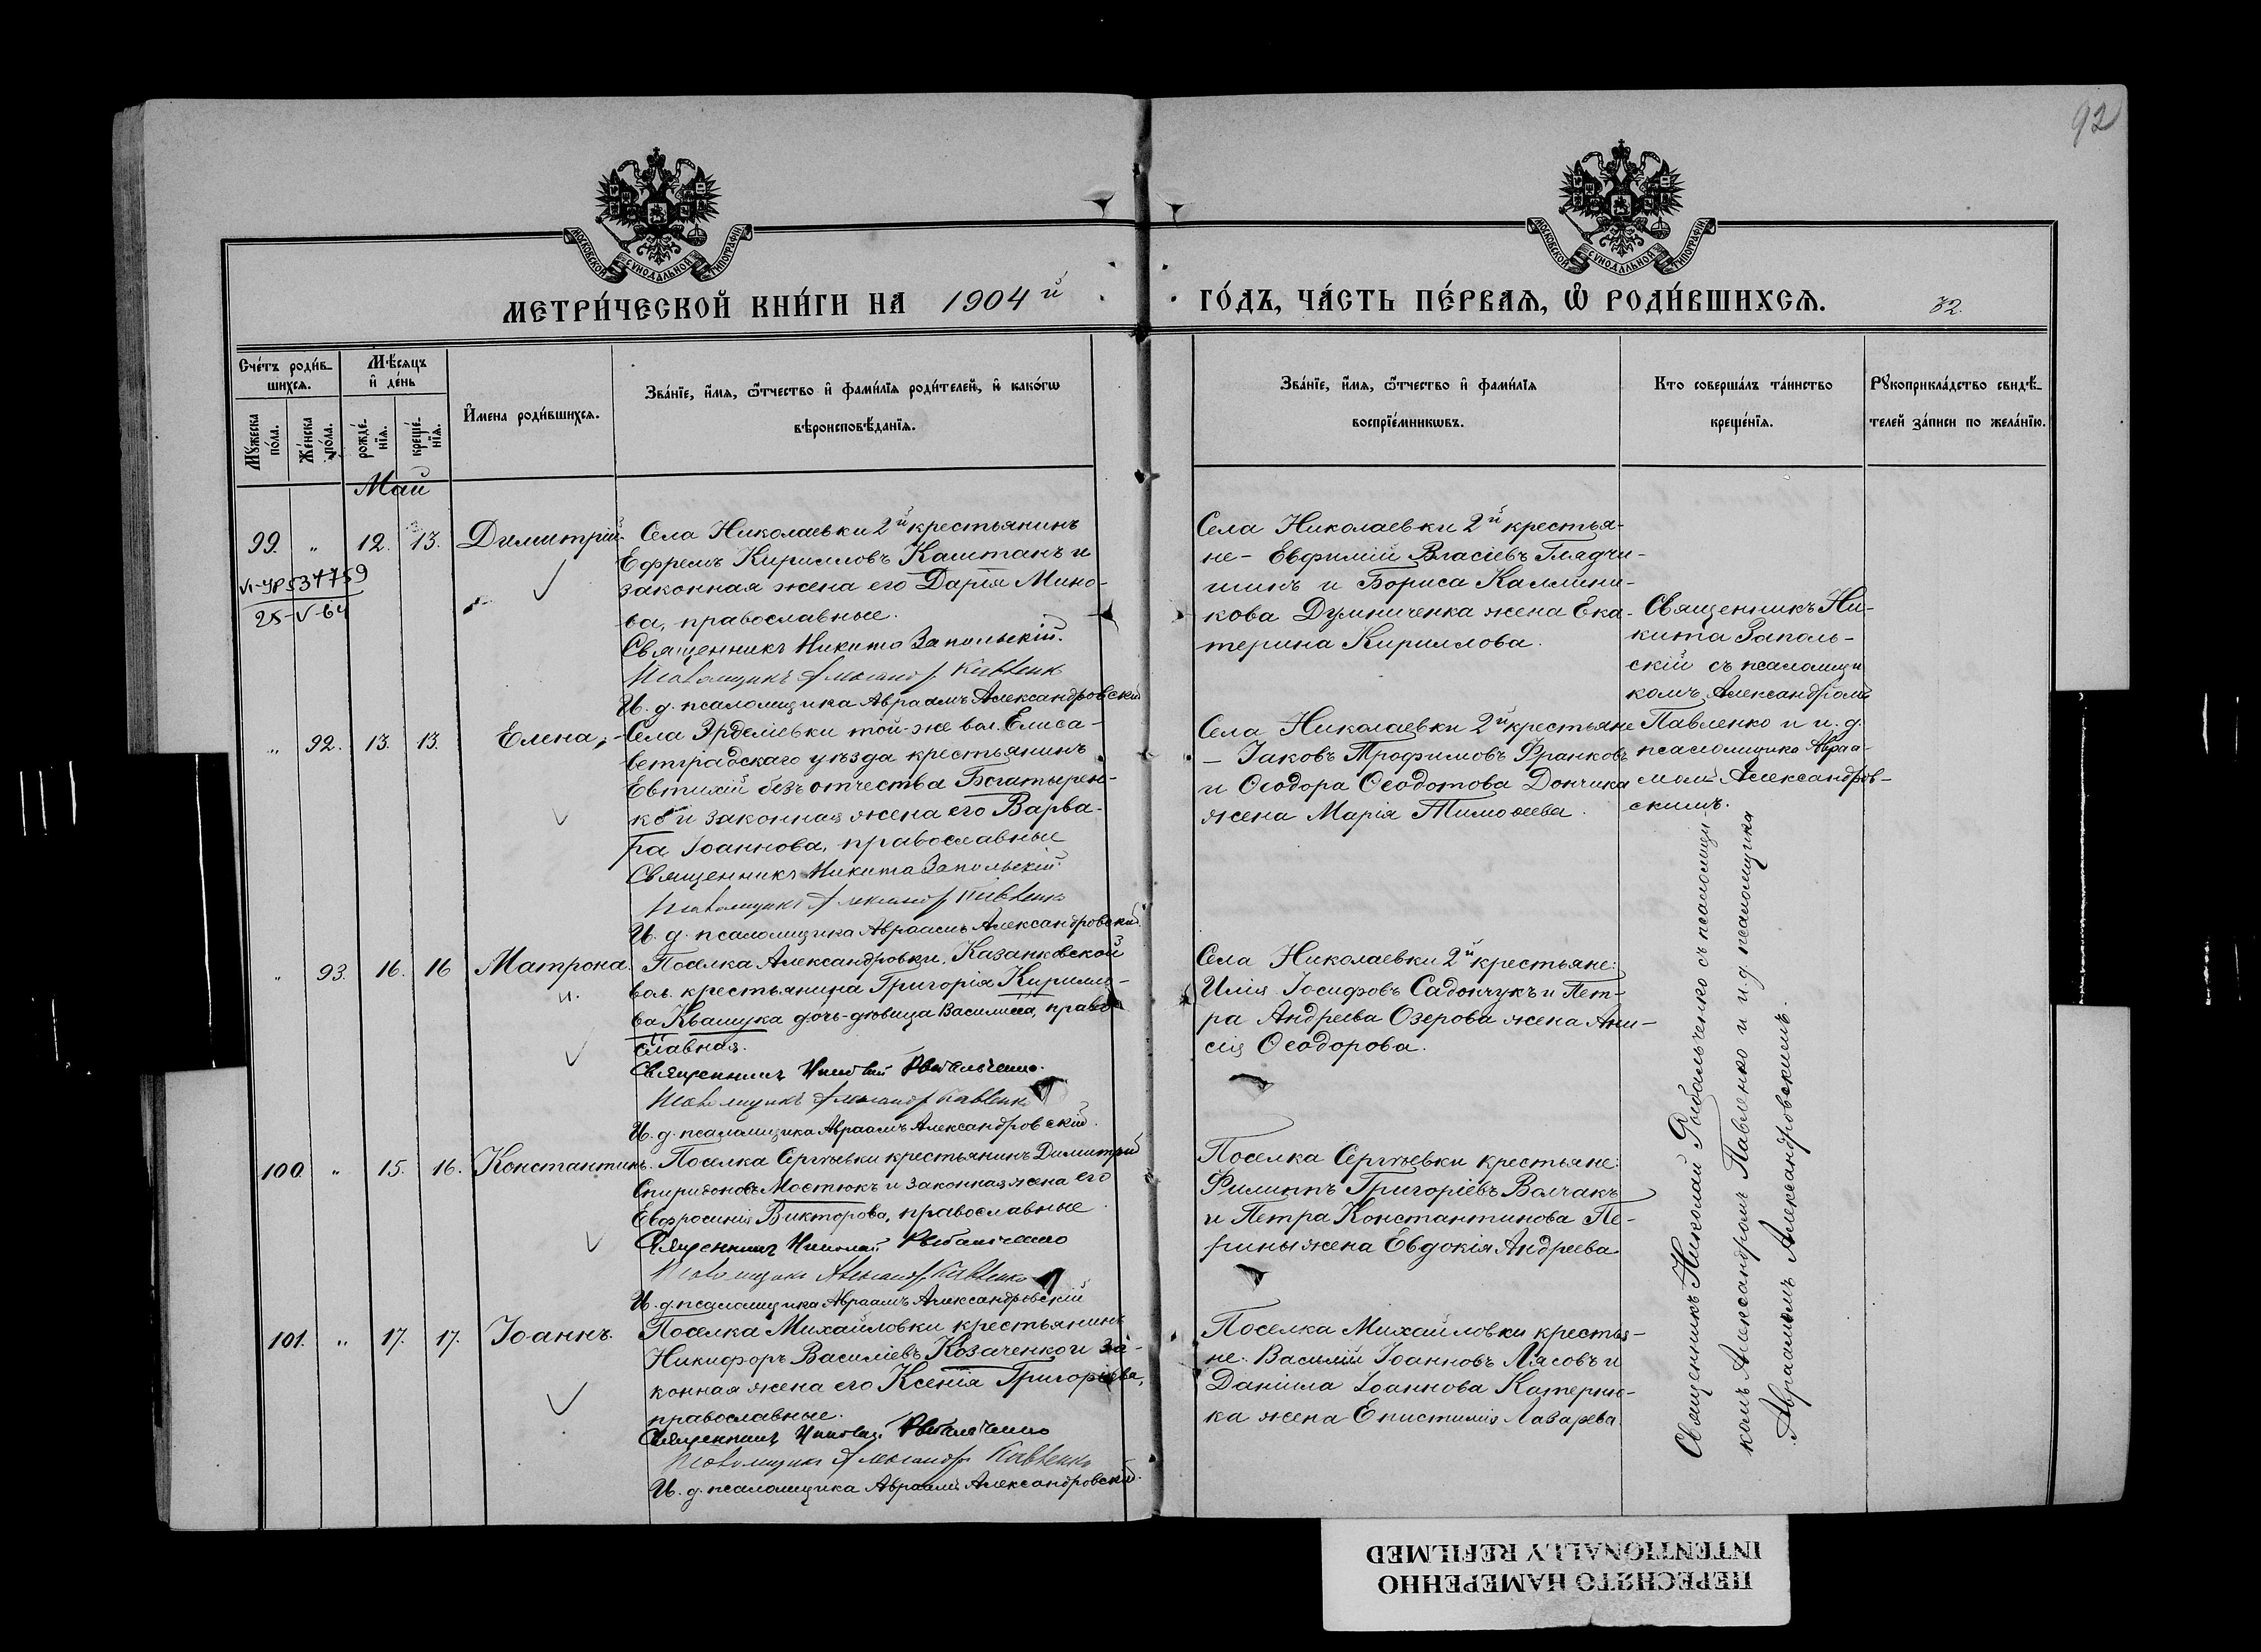 92
МОСКОВСКОЙ СѴНОДАЛЬНОЙ ТИПОГРАФІИ
МОСКОВСКОЙ СѴНОДАЛЬНОЙ ТИПОГРАФІИ
МЕТРИ́ЧЕСКОЙ КНИ́ГИ НА 1904 й
ГО́ДЪ, ЧА́СТЬ ПЕ́РВАЯ, Ѡ РОДИ́ВШИХСЯ.
Сче́тъ роди́в-
шихся.
Мꙋжеска по́ла.
Же́нска по́ла.
Мѣ́сяцъ
и҆ де́нь
рожде́нїя.
креще́нїя.
И҆мена роди́вшихся.
Зва́нїе, и҆́мя, ѻ҆́тчество и҆ фами́лїя роди́телей, и҆ како́гѡ
вѣроисповѣ́данїя.
Зва́нїе, и҆́мя, ѻ҆́тчество и҆ фами́лїя
воспрїе́мникѡвъ.
Кто соверша́лъ та́инство
креще́нїя.
Рꙋкоприкла́дство свидѣ́-
телей за́писи по жела́нїю.
Май
99. " 12. 13. Димитрій.
25-V-64
Села Николаевки 2й крестьянинъ
Ефремъ Кирилловъ Каштанъ и
законная жена его Дарія Мино-
ва, православные.
Священникъ Никита Запольскій.
Псаломщикъ Александръ Павленко
И. д. псаломщика Авраамъ Александровскій
Села Николаевки 2й крестья-
не - Евфимій Власіевъ Гладчи-
шинъ и Бориса Каллини-
кова Думниченка жена Ека-
терина Кириллова.
Священникъ Ни-
кита Заполь-
скій съ псаломщи
комъ Александромъ
Павленко и и. д.
псаломщика Авраа-
момъ Александров-
скимъ.
" 92. 13. 13. Елена,
Села Эрделіевки той-же вол. Елиса-
ветградскаго уѣзда крестьянинъ
Евтихій безъ отчества Богатырен-
ко и законная жена его Варва-
ра Іоаннова, православные
Священникъ Никита Запольскій
Псаломщикъ Александръ Павленко
И. д. псаломщика Авраамъ Александровскій.
Села Николаевки 2й крестьяне
- Іаковъ Трофимовъ Франковъ
и Ѳеодора Ѳеодотова Дончика
жена Марія Тимоѳеева.
" 93. 16. 16 Матрона.
Поселка Александровки, Казанковской
вол. крестьянина Григорія Кирилло-
ва Квашука дочь-дѣвица Василисса, право
славная.
Священникъ Николай Рыбальченко.
Псаломщикъ Александръ Павленко
И. д. псаломщика Авраамъ Александровскій.
Села Николаевки 2й крестьяне:
Илія Іосифовъ Садончукъ и Пет-
ра Андреева Озерова жена Ани-
сія Ѳеодорова.
100. " 15. 16. Константинъ.
Поселка Сергѣевки крестьянинъ Димитрій
Спиридоновъ Мостюкъ и законная жена его
Евфросинія Викторова, православные
Священникъ Николай Рыбальченко
Псаломщикъ Александръ Павленко
И. д. псаломщика Авраамъ Александровскій
Поселка Сергѣевки крестьяне:
Филиппъ Григоріевъ Волчакъ
и Петра Константинова Пе-
рины жена Евдокія Андреева
101. " 17. 17. Іоаннъ.
Поселка Михайловки крестьянинъ
Никифоръ Василіевъ Козаченко и за-
конная жена его Ксенія Григоріева,
православные.
Священникъ Николай Рыбальченко
Псаломщикъ Александръ Павленко
И. д. псаломщика Авраамъ Александровскій.
Поселка Михайловки крестья-
не: Василій Іоанновъ Лясовъ и
Даніила Іоаннова Катерин-
ка жена Епистимія Лазарева
Священникъ Николай Рыбальченко съ псаломщи-
комъ Александромъ Павленко и и. д. псаломщика
Авраамомъ Александровскимъ.
ПЕРЕСНЯТО НАМЕРЕННО
INTENTIONALLY REFILMED